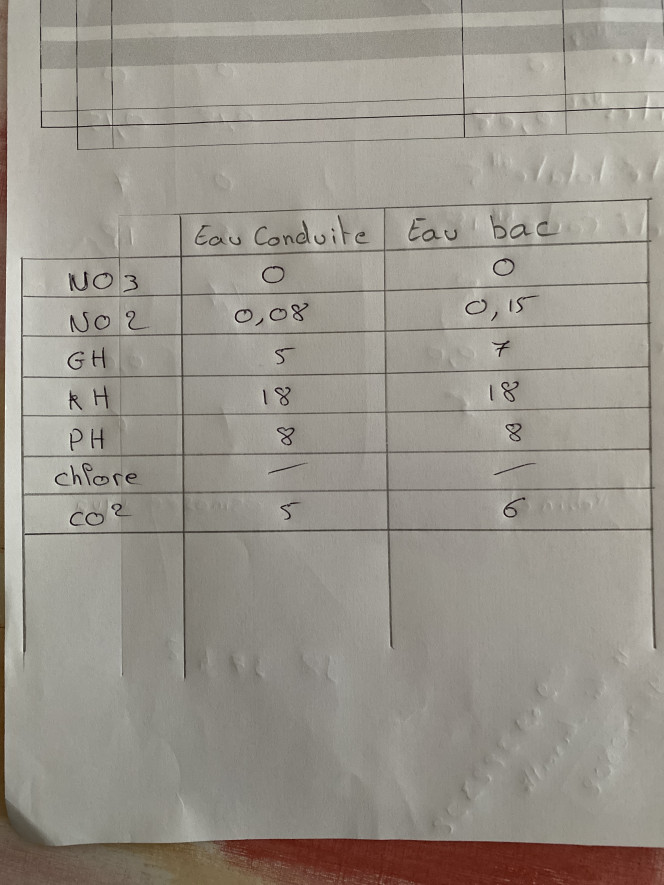 Eau Conduite Eau bac
NO3 0 0
NO2 0,08 0,15
GH 5 7
KH 18 18
PH 8 8
chlore — —
CO² 5 6